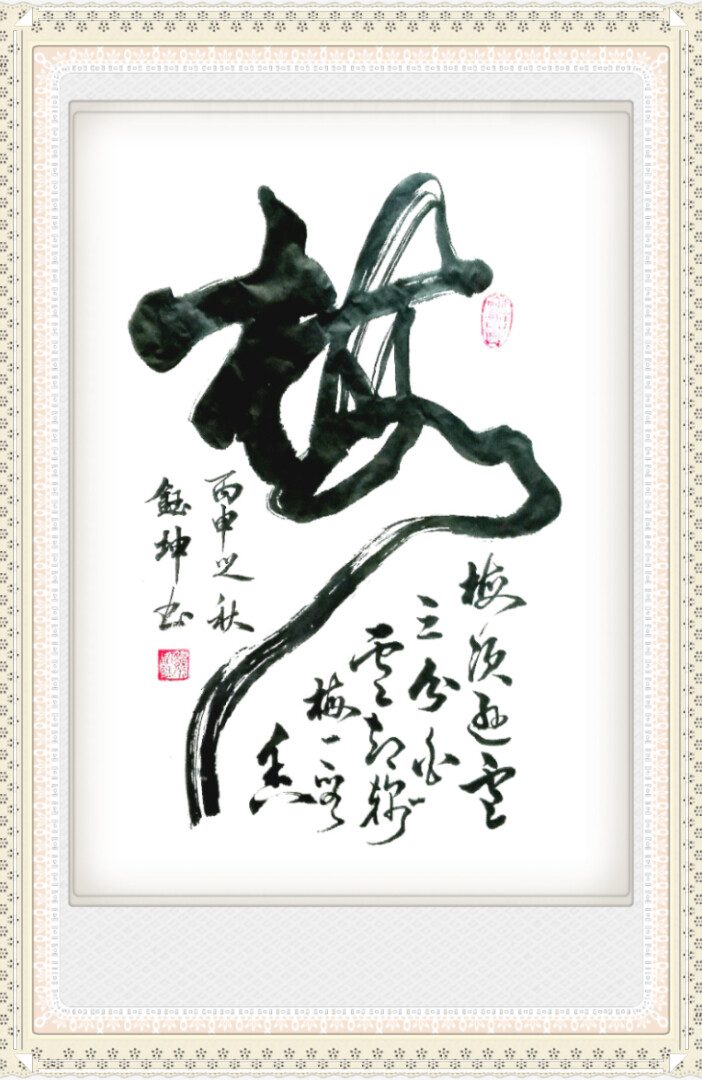 梅
梅须逊雪
三分白
雪却输
梅一段
香
丙申之秋
鈺坤书